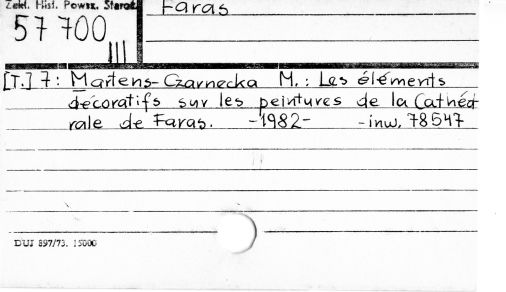 Zakł. Hist. Powsz. Staroż.
Faras
57 700
III
[T.] 7: Martens-Czarnecka M.: Les éléments
décoratifs sur les peintures de la Cathéd
rale de Faras. -1982- -inw. 78547
DUJ 897/73. 15000